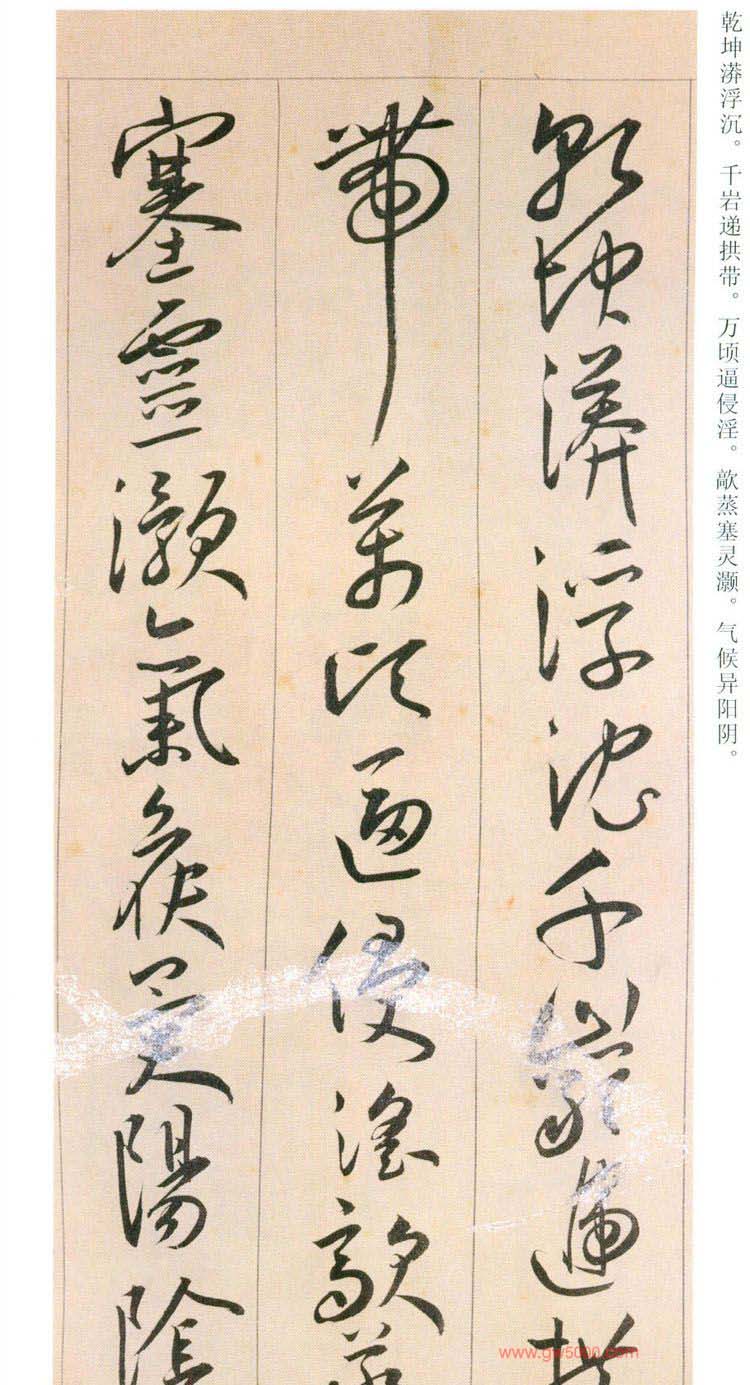 乾坤漭浮沉。千岩递拱带。万顷逼侵淫。歊蒸塞灵灏。气候异阳阴。
乾坤漭浮沈千巖遞拱
帶萬頃逼侵淫歊蒸
塞靈灝氣候異陽陰
www.gw5000.com